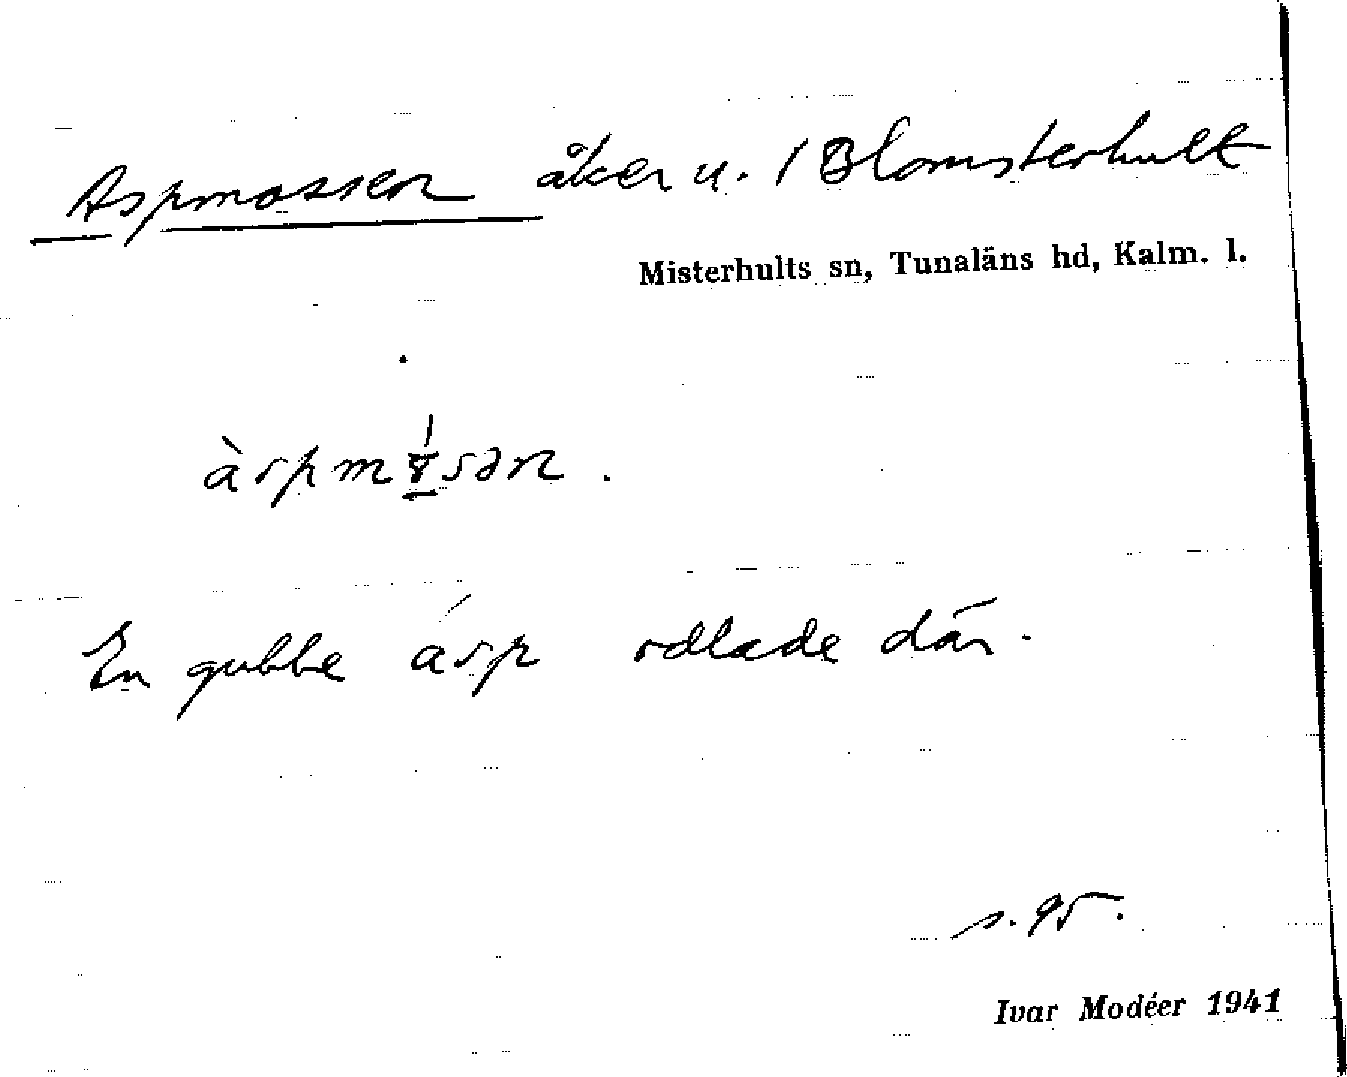 Aspmossen åker u. / Blomsterhult
Misterhults sn, Tunaläns hd, Kalm. l.
En gubbe ásp odlade där.
s. 95.
Ivar Modéer 1941